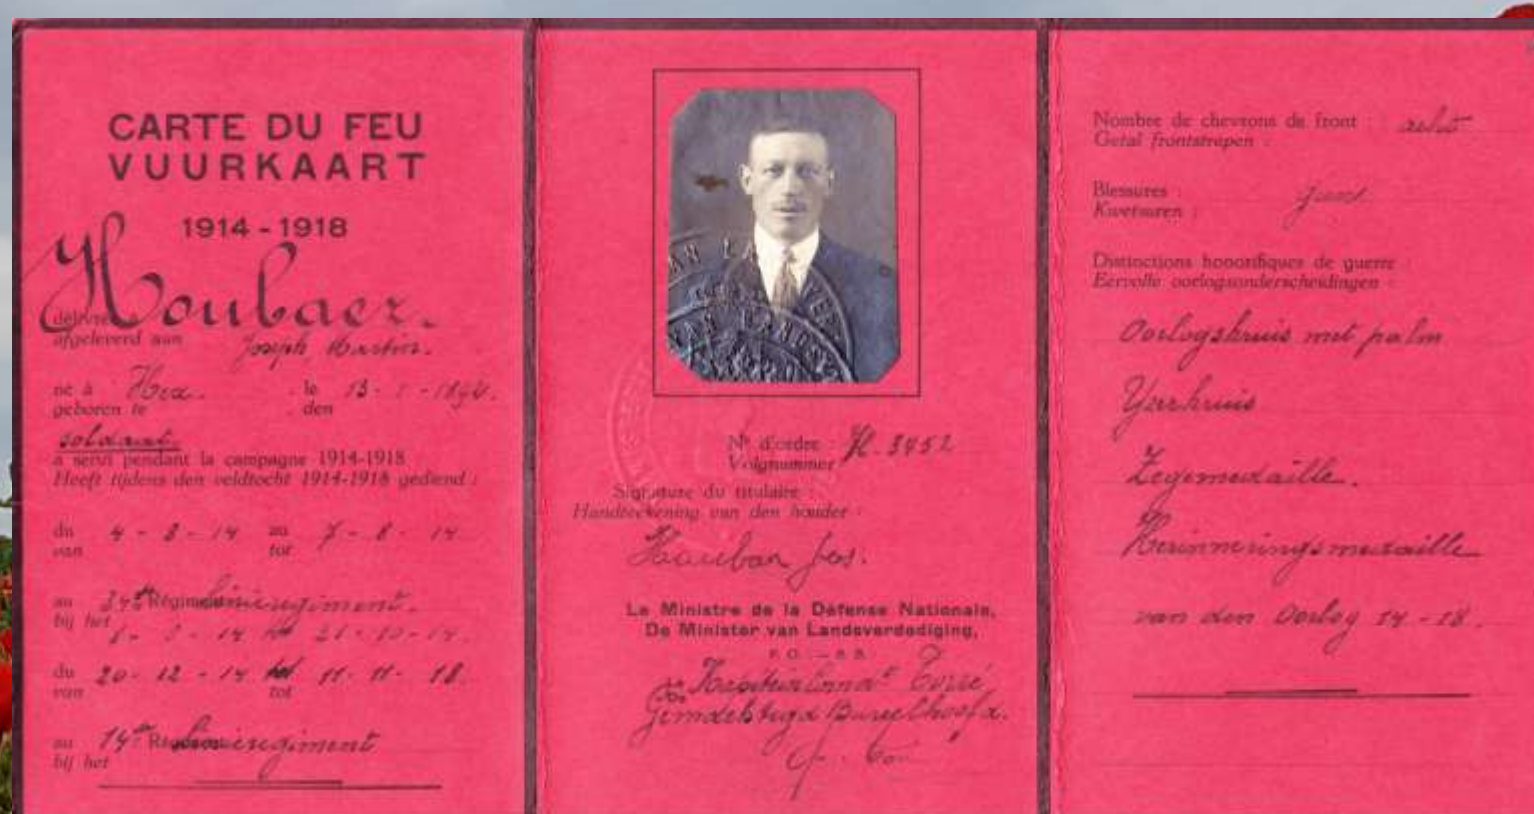 CARTE DU FEU
VUURKAART
1914 - 1918
Houbaer.
délivrée
afgeleverd aan Joseph Martin.
né à Hex. le 13 - 1 - 1894.
geboren te den
soldaat.
a servi pendant la campagne 1914-1918
Heeft tijdens den veldtocht 1914-1918 gediend :
du 4 - 8 - 14 au 7 - 8 - 14
van tot
au 34ste Régiment Linieregiment.
bij het 8 - 8 - 14 tot 21 - 10 - 14.
du 20 - 12 - 14 tot 11 - 11 - 18.
van tot
au 14de Linieregiment
bij het
N° d'ordre : H. 3452
Volgnummer
Signature du titulaire :
Handteekening van den houder :
Houbaer Jos.
Le Ministre de la Défense Nationale,
De Minister van Landsverdediging,
P. O. — B. B.
Kapitein
Gemachtigd Bureelhoofd.
Nombre de chevrons de front : acht
Getal frontstrepen :
Blessures : geene
Kwetsuren :
Distinctions honorifiques de guerre :
Eervolle oorlogsonderscheidingen :
Oorlogskruis met palm
Yzerkruis
Zegemedaille.
Herinneringsmedaille
van den Oorlog 14 - 18.